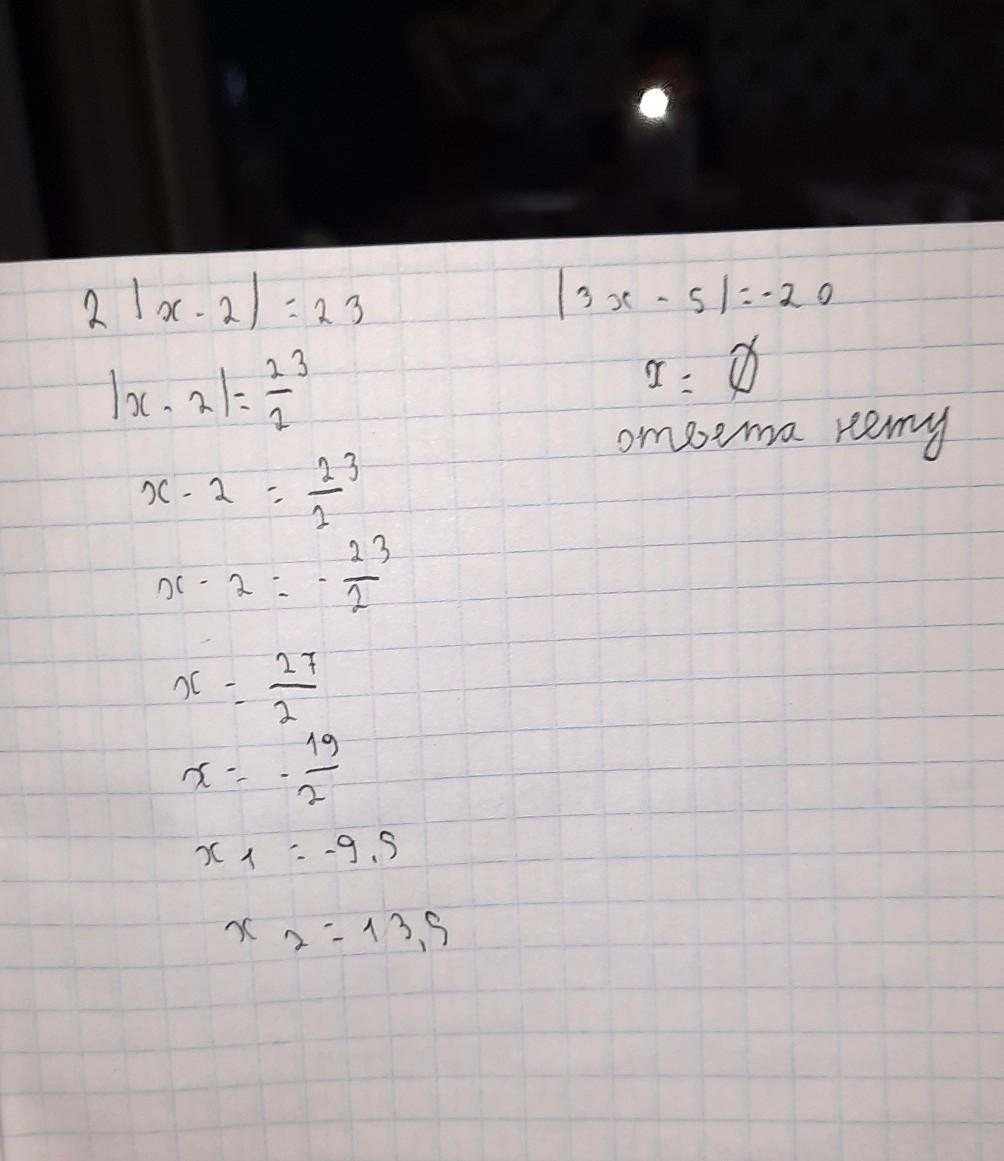 2 |x - 2| = 23
|x - 2| = 23/2
x - 2 = 23/2
x - 2 = - 23/2
x = 27/2
x = - 19/2
x 1 = -9,5
x 2 = 13,5
|3x - 5| = -20
x = ∅
ответа нету